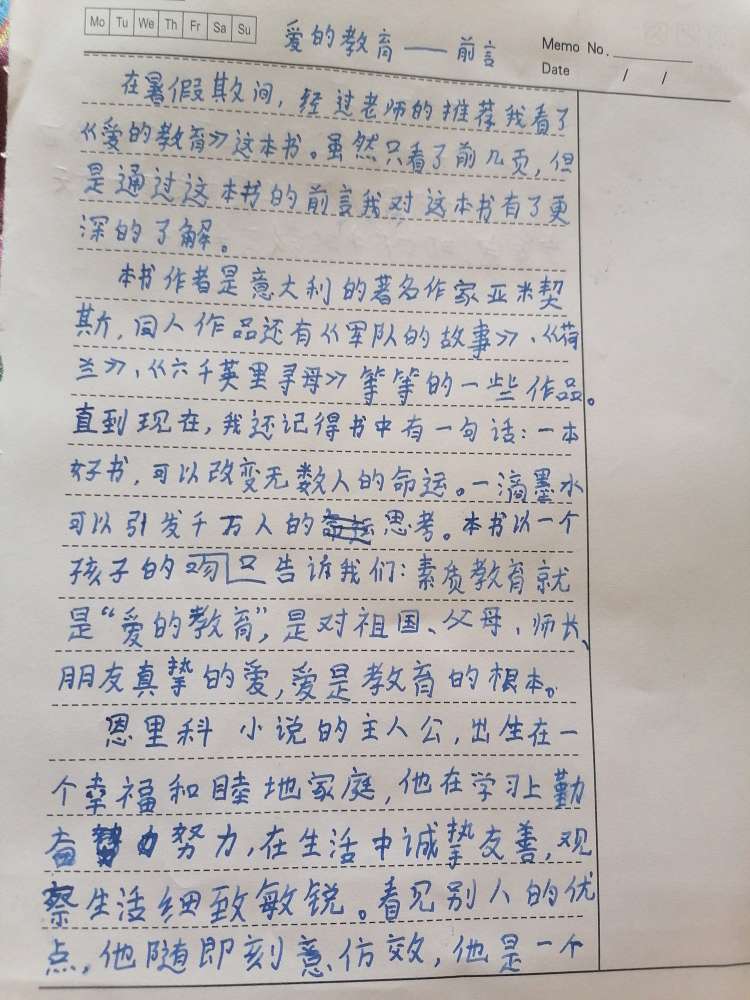 Mo Tu We Th Fr Sa Su
爱的教育——前言
Memo No.
Date / /
在暑假期间，经过老师的推荐我看了
《爱的教育》这本书。虽然只看了前几页，但
是通过这本书的前言我对这本书有了更
深的了解。
本书作者是意大利的著名作家亚米契
斯，同人作品还有《军队的故事》、《荷
兰》、《六千英里寻母》等等的一些作品。
直到现在，我还记得书中有一句话：一本
好书，可以改变无数人的命运。一滴墨水
可以引发千万人的思考。本书以一个
孩子的吻口告诉我们：素质教育就
是“爱的教育”，是对祖国、父母、师长、
朋友真挚的爱，爱是教育的根本。
恩里科 小说的主人公，出生在一
个幸福和睦地家庭，他在学习上勤
奋努力，在生活中诚挚友善，观
察生活细致敏锐。看见别人的优
点，他随即刻意仿效，他是一个